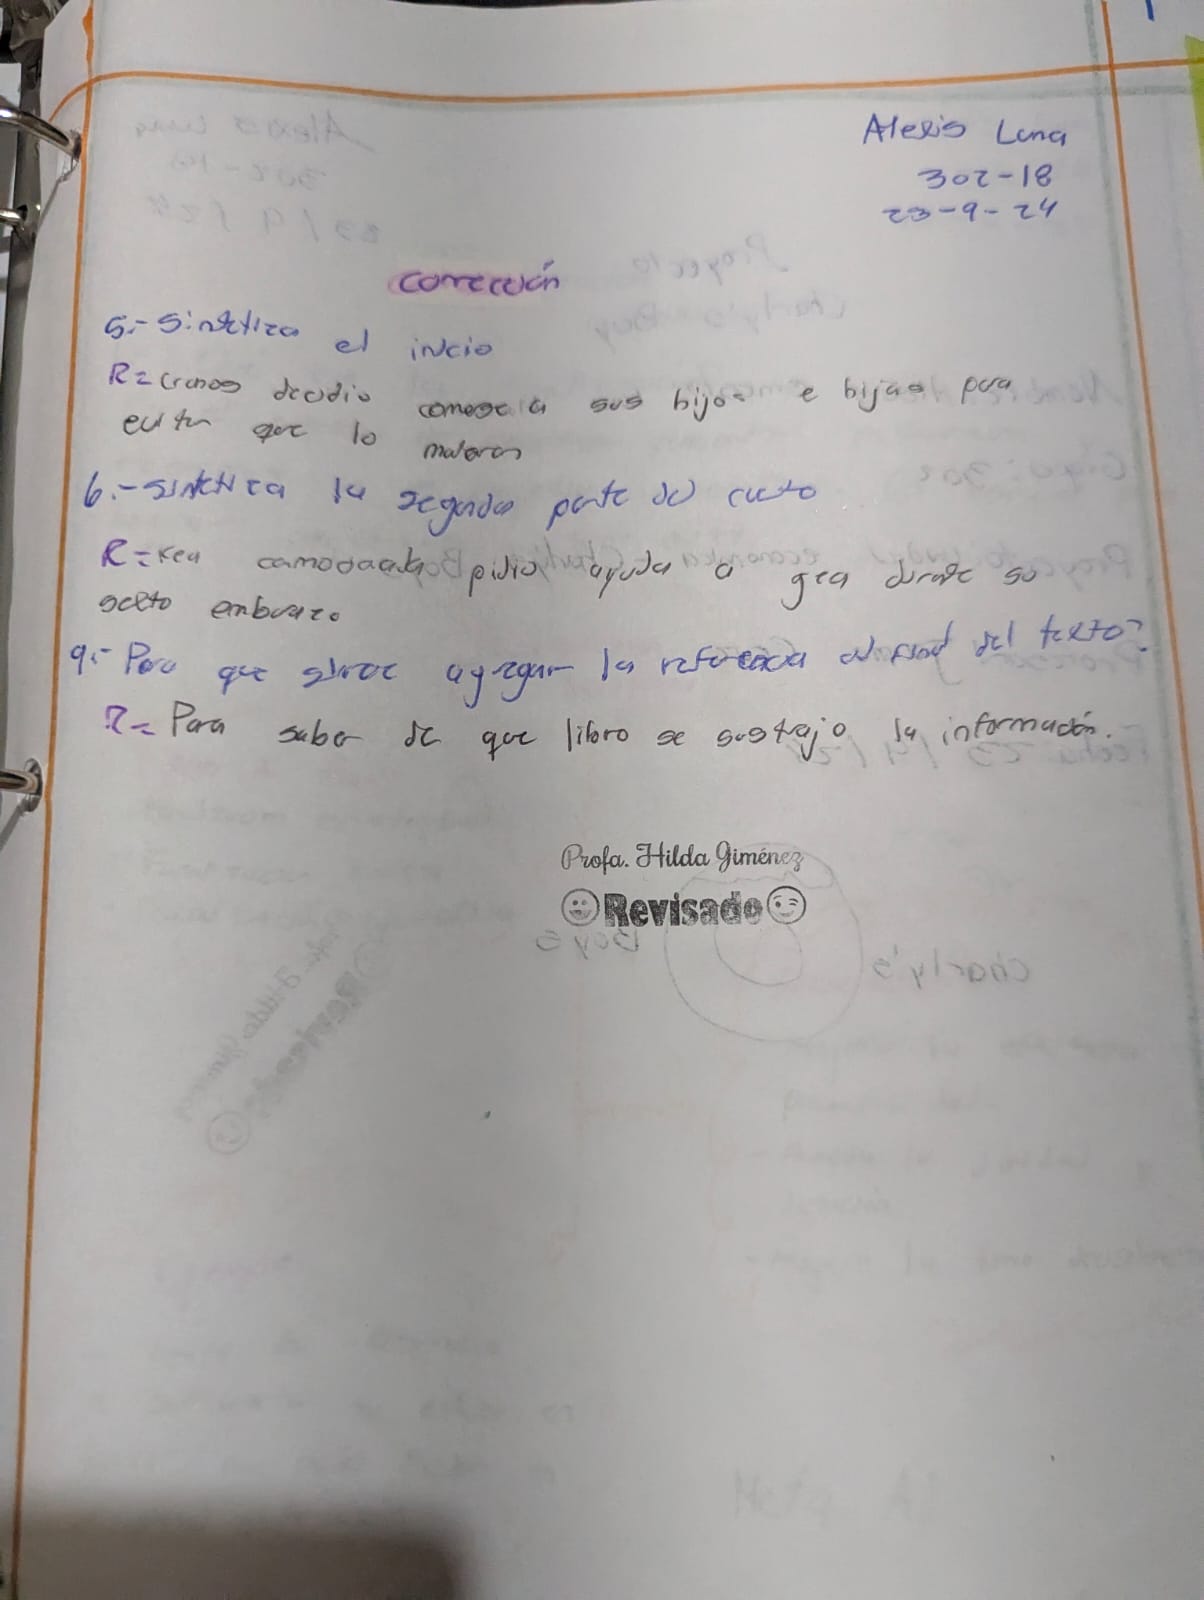 Alexis Luna
302-18
23-9-24
Corrección
5.- Sintetiza el inicio
R= Cronos decidio comerse a sus hijos e hijas para
evitar que lo mataran
6.- Sintetiza la segunda parte del cuento
R= Rea pidio ayuda a gea durante su
sexto embarazo
9.- Para que sirve agregar la referencia al final del texto?
R= Para saber de que libro se sustrajo la información.
Profa. Hilda Giménez
Revisado